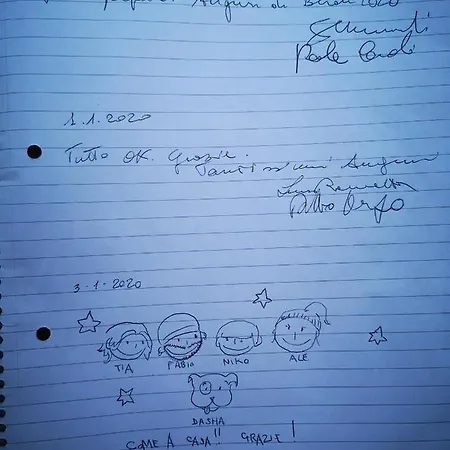 Auguri di Buon 2020
1.1.2020
Tutto OK. Grazie.
Tantissimi Auguri
3-1-2020
TIA FABIO NIKO ALE
DASHA
COME A CASA!! GRAZIE!